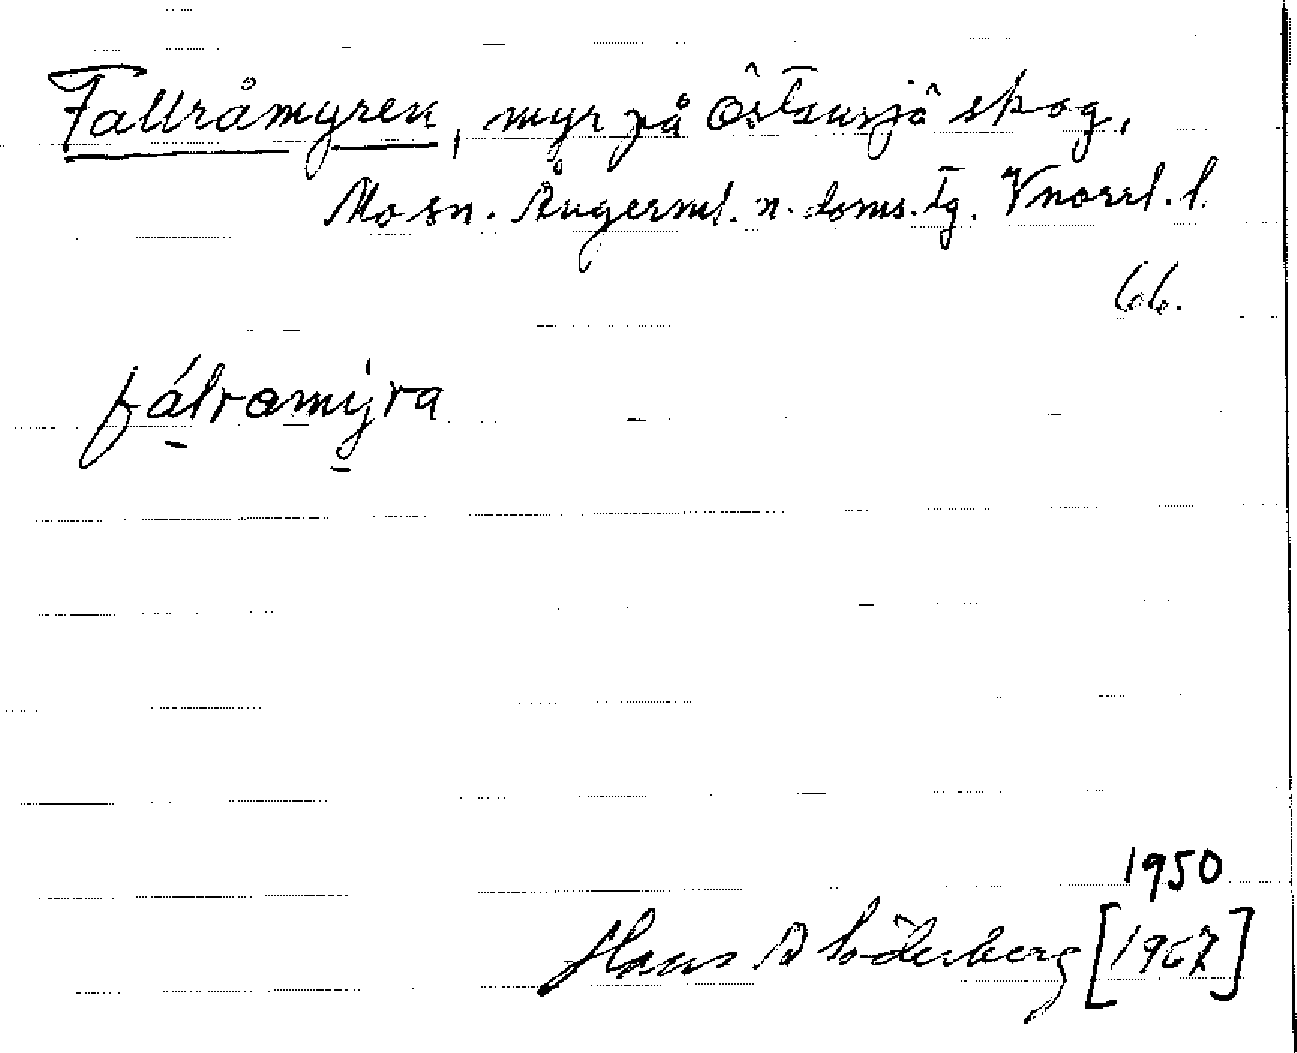 Fallråmyren, myr på Östansjö skog,
Mo sn. Ångerml. n. doms. tg. Vnorrl. l.
66.
fálramýra
1950
Hans A Söderberg [1967]